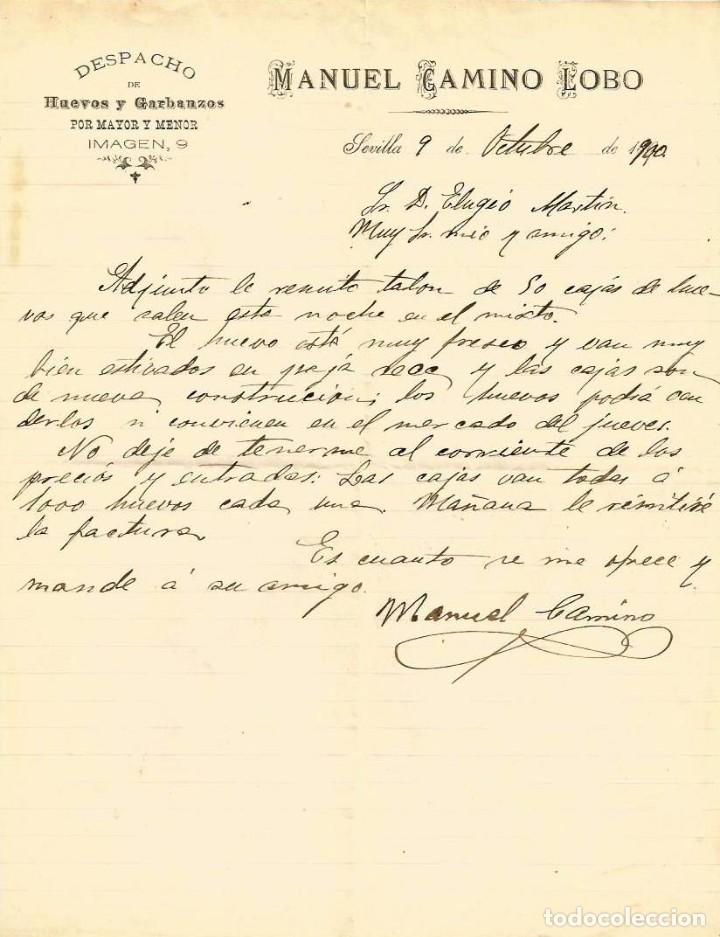 DESPACHO
DE
Huevos y Garbanzos
POR MAYOR Y MENOR
IMAGEN, 9
MANUEL CAMINO LOBO
Sevilla 9 de Octubre de 1900
Sr. D. Elugio Martin.
Muy Sr. mio y amigo:
Adjunto le remito talon de 50 cajas de hue-
vos que salen esta noche en el mixto.
El huevo está muy fresco y van muy
bien estivados en paja y las cajas son
de nueva construcion; los huevos podrá ven
derlos si convienen en el mercado del jueves.
No deje de tenerme al corriente de los
precios y entradas: Las cajas van todas á
1000 huevos cada una. Mañana le remitiré
la factura
Es cuanto se me ofrece y
mande á su amigo.
Manuel Camino
todocoleccion